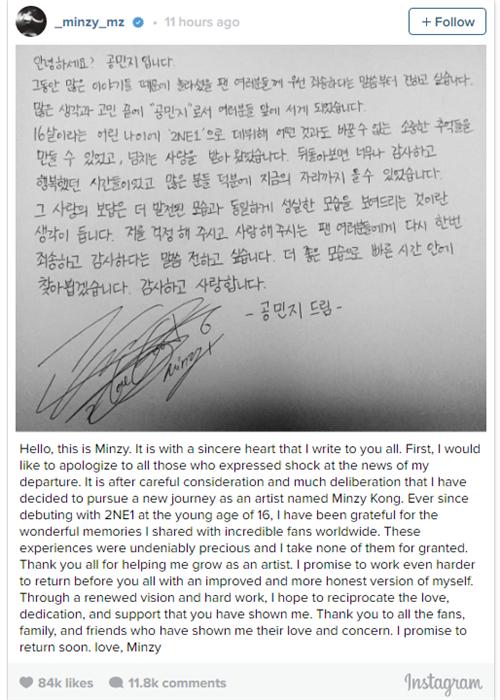 _minzy_mz • 11 hours ago
+ Follow
안녕하세요? 공민지 입니다.
그동안 많은 이야기들 때문에 놀라셨을 팬 여러분들께 우선 죄송하다는 말씀부터 전하고 싶습니다.
많은 생각과 고민 끝에 "공민지"로서 여러분들 앞에 서게 되었습니다.
16살이라는 어린 나이에 '2NE1'으로 데뷔해 어떤 것과도 바꿀 수 없는 소중한 추억들을
만들 수 있었고, 넘치는 사랑을 받아 왔었습니다. 뒤돌아보면 너무나 감사하고
행복했던 시간들이었고 많은 분들 덕분에 지금의 자리까지 올 수 있었습니다.
그 사랑의 보답은 더 발전된 모습과 동일하게 성실한 모습을 보여드리는 것이란
생각이 듭니다. 저를 걱정 해 주시고 사랑해 주시는 팬 여러분들에게 다시 한번
죄송하고 감사하다는 말씀 전하고 싶습니다. 더 좋은 모습으로 빠른 시간 안에
찾아뵙겠습니다. 감사하고 사랑합니다.
- 공민지 드림 -
love minzy
Hello, this is Minzy. It is with a sincere heart that I write to you all. First, I would
like to apologize to all those who expressed shock at the news of my
departure. It is after careful consideration and much deliberation that I have
decided to pursue a new journey as an artist named Minzy Kong. Ever since
debuting with 2NE1 at the young age of 16, I have been grateful for the
wonderful memories I shared with incredible fans worldwide. These
experiences were undeniably precious and I take none of them for granted.
Thank you all for helping me grow as an artist. I promise to work even harder
to return before you all with an improved and more honest version of myself.
Through a renewed vision and hard work, I hope to reciprocate the love,
dedication, and support that you have shown me. Thank you to all the fans,
family, and friends who have shown me their love and concern. I promise to
return soon. love, Minzy
84k likes 11.8k comments
Instagram